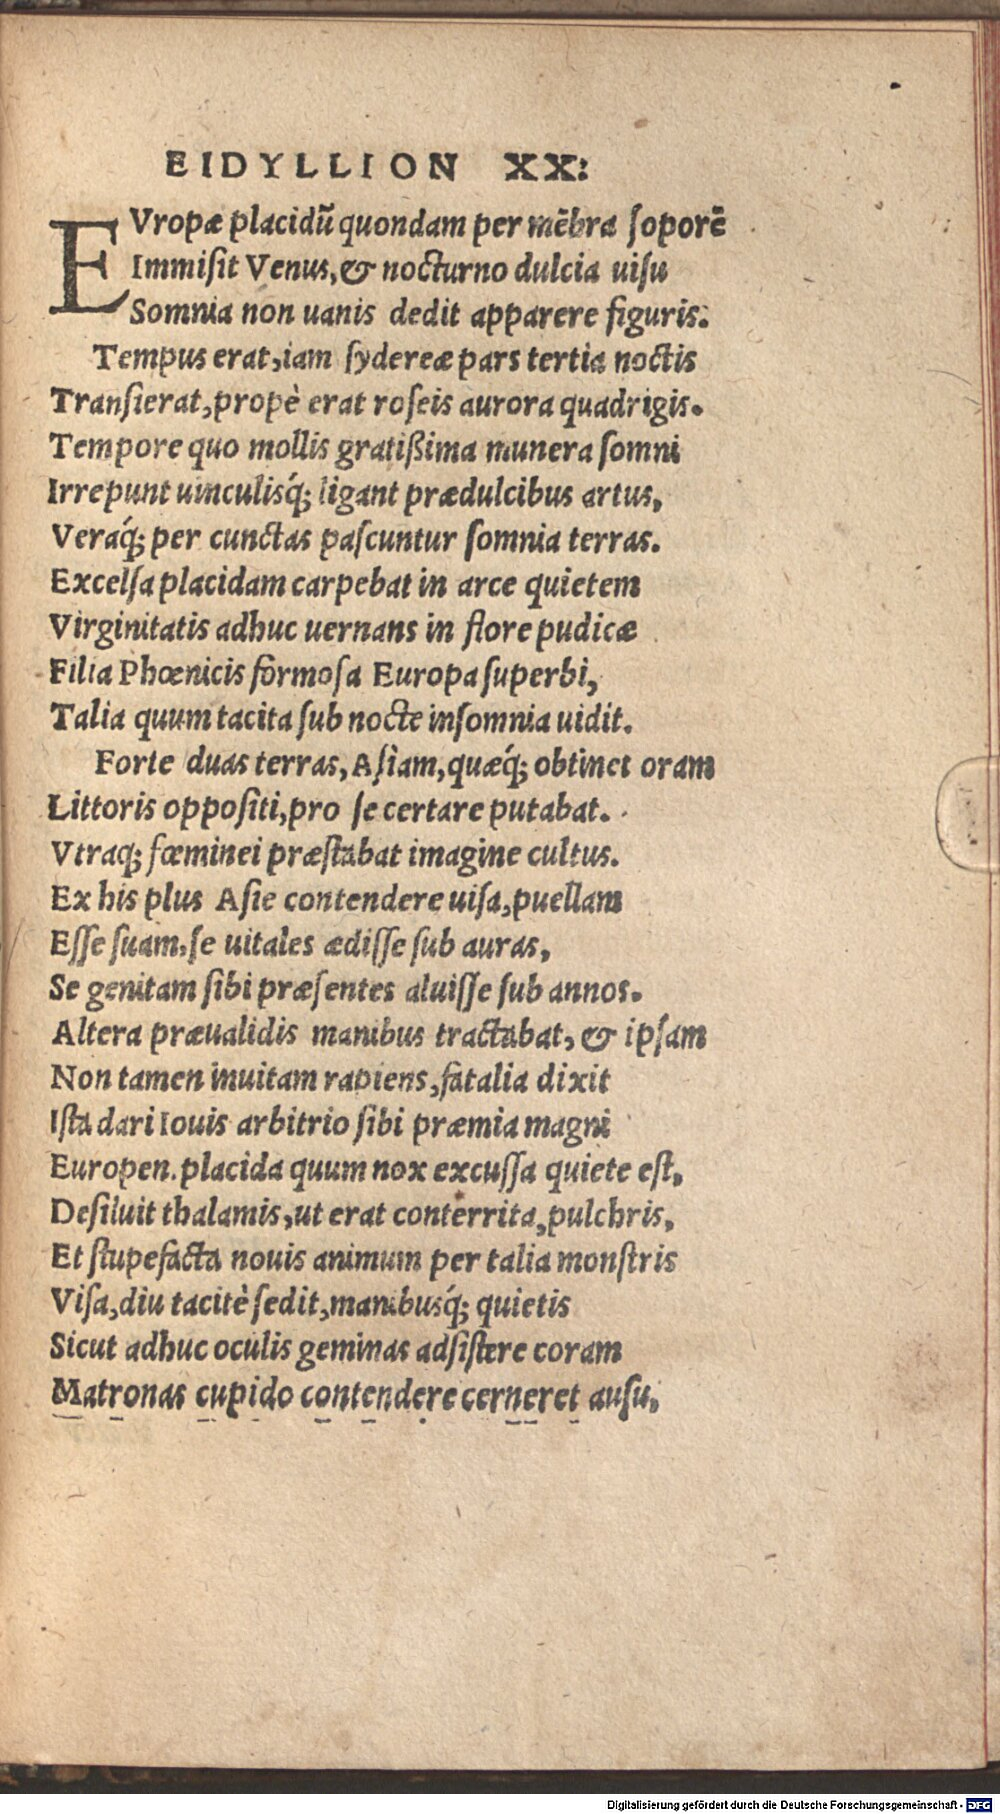 EIDYLLION XX:
EVropæ placidũ quondam per mẽbra ſoporẽ
Immiſit Venus, & nocturno dulcia uiſu
Somnia non uanis dedit apparere figuris.
Tempus erat, iam ſydereæ pars tertia noctis
Tranſierat, propè erat roſeis aurora quadrigis.
Tempore quo mollis gratißima munera ſomni
Irrepunt uinculisq́; ligant prædulcibus artus,
Veraq́; per cunctas paſcuntur ſomnia terras.
Excelſa placidam carpebat in arce quietem
Virginitatis adhuc uernans in flore pudicæ
Filia Phœnicis formoſa Europa ſuperbi,
Talia quum tacita ſub nocte inſomnia uidit.
Forte duas terras, Aſiam, quæq́; obtinet oram
Littoris oppoſiti, pro ſe certare putabat.
Vtraq; fœminei præſtabat imagine cultus.
Ex his plus Aſie contendere uiſa, puellam
Eſſe ſuam, ſe uitales ædiſſe ſub auras,
Se genitam ſibi præſentes aluiſſe ſub annos.
Altera præualidis manibus tractabat, & ipſam
Non tamen inuitam rapiens, fatalia dixit
Iſta dari Iouis arbitrio ſibi præmia magni
Europen. placida quum nox excuſſa quiete eſt,
Deſiluit thalamis, ut erat conterrita, pulchris,
Et ſtupefacta nouis animum per talia monſtris
Viſa, diu tacitè ſedit, manibusq́; quietis
Sicut adhuc oculis geminas adſiſtere coram
Matronas cupido contendere cerneret auſu,
Digitalisierung gefördert durch die Deutsche Forschungsgemeinschaft - DFG